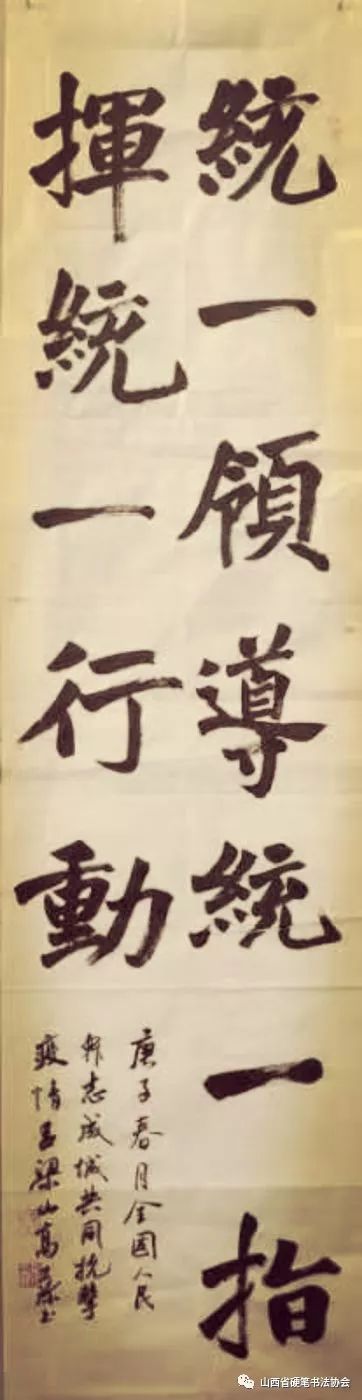 統一領導統一指
揮統一行動
庚子春月全國人民
衆志成城共同抗擊
疫情吕梁山高书
山西省硬笔书法协会